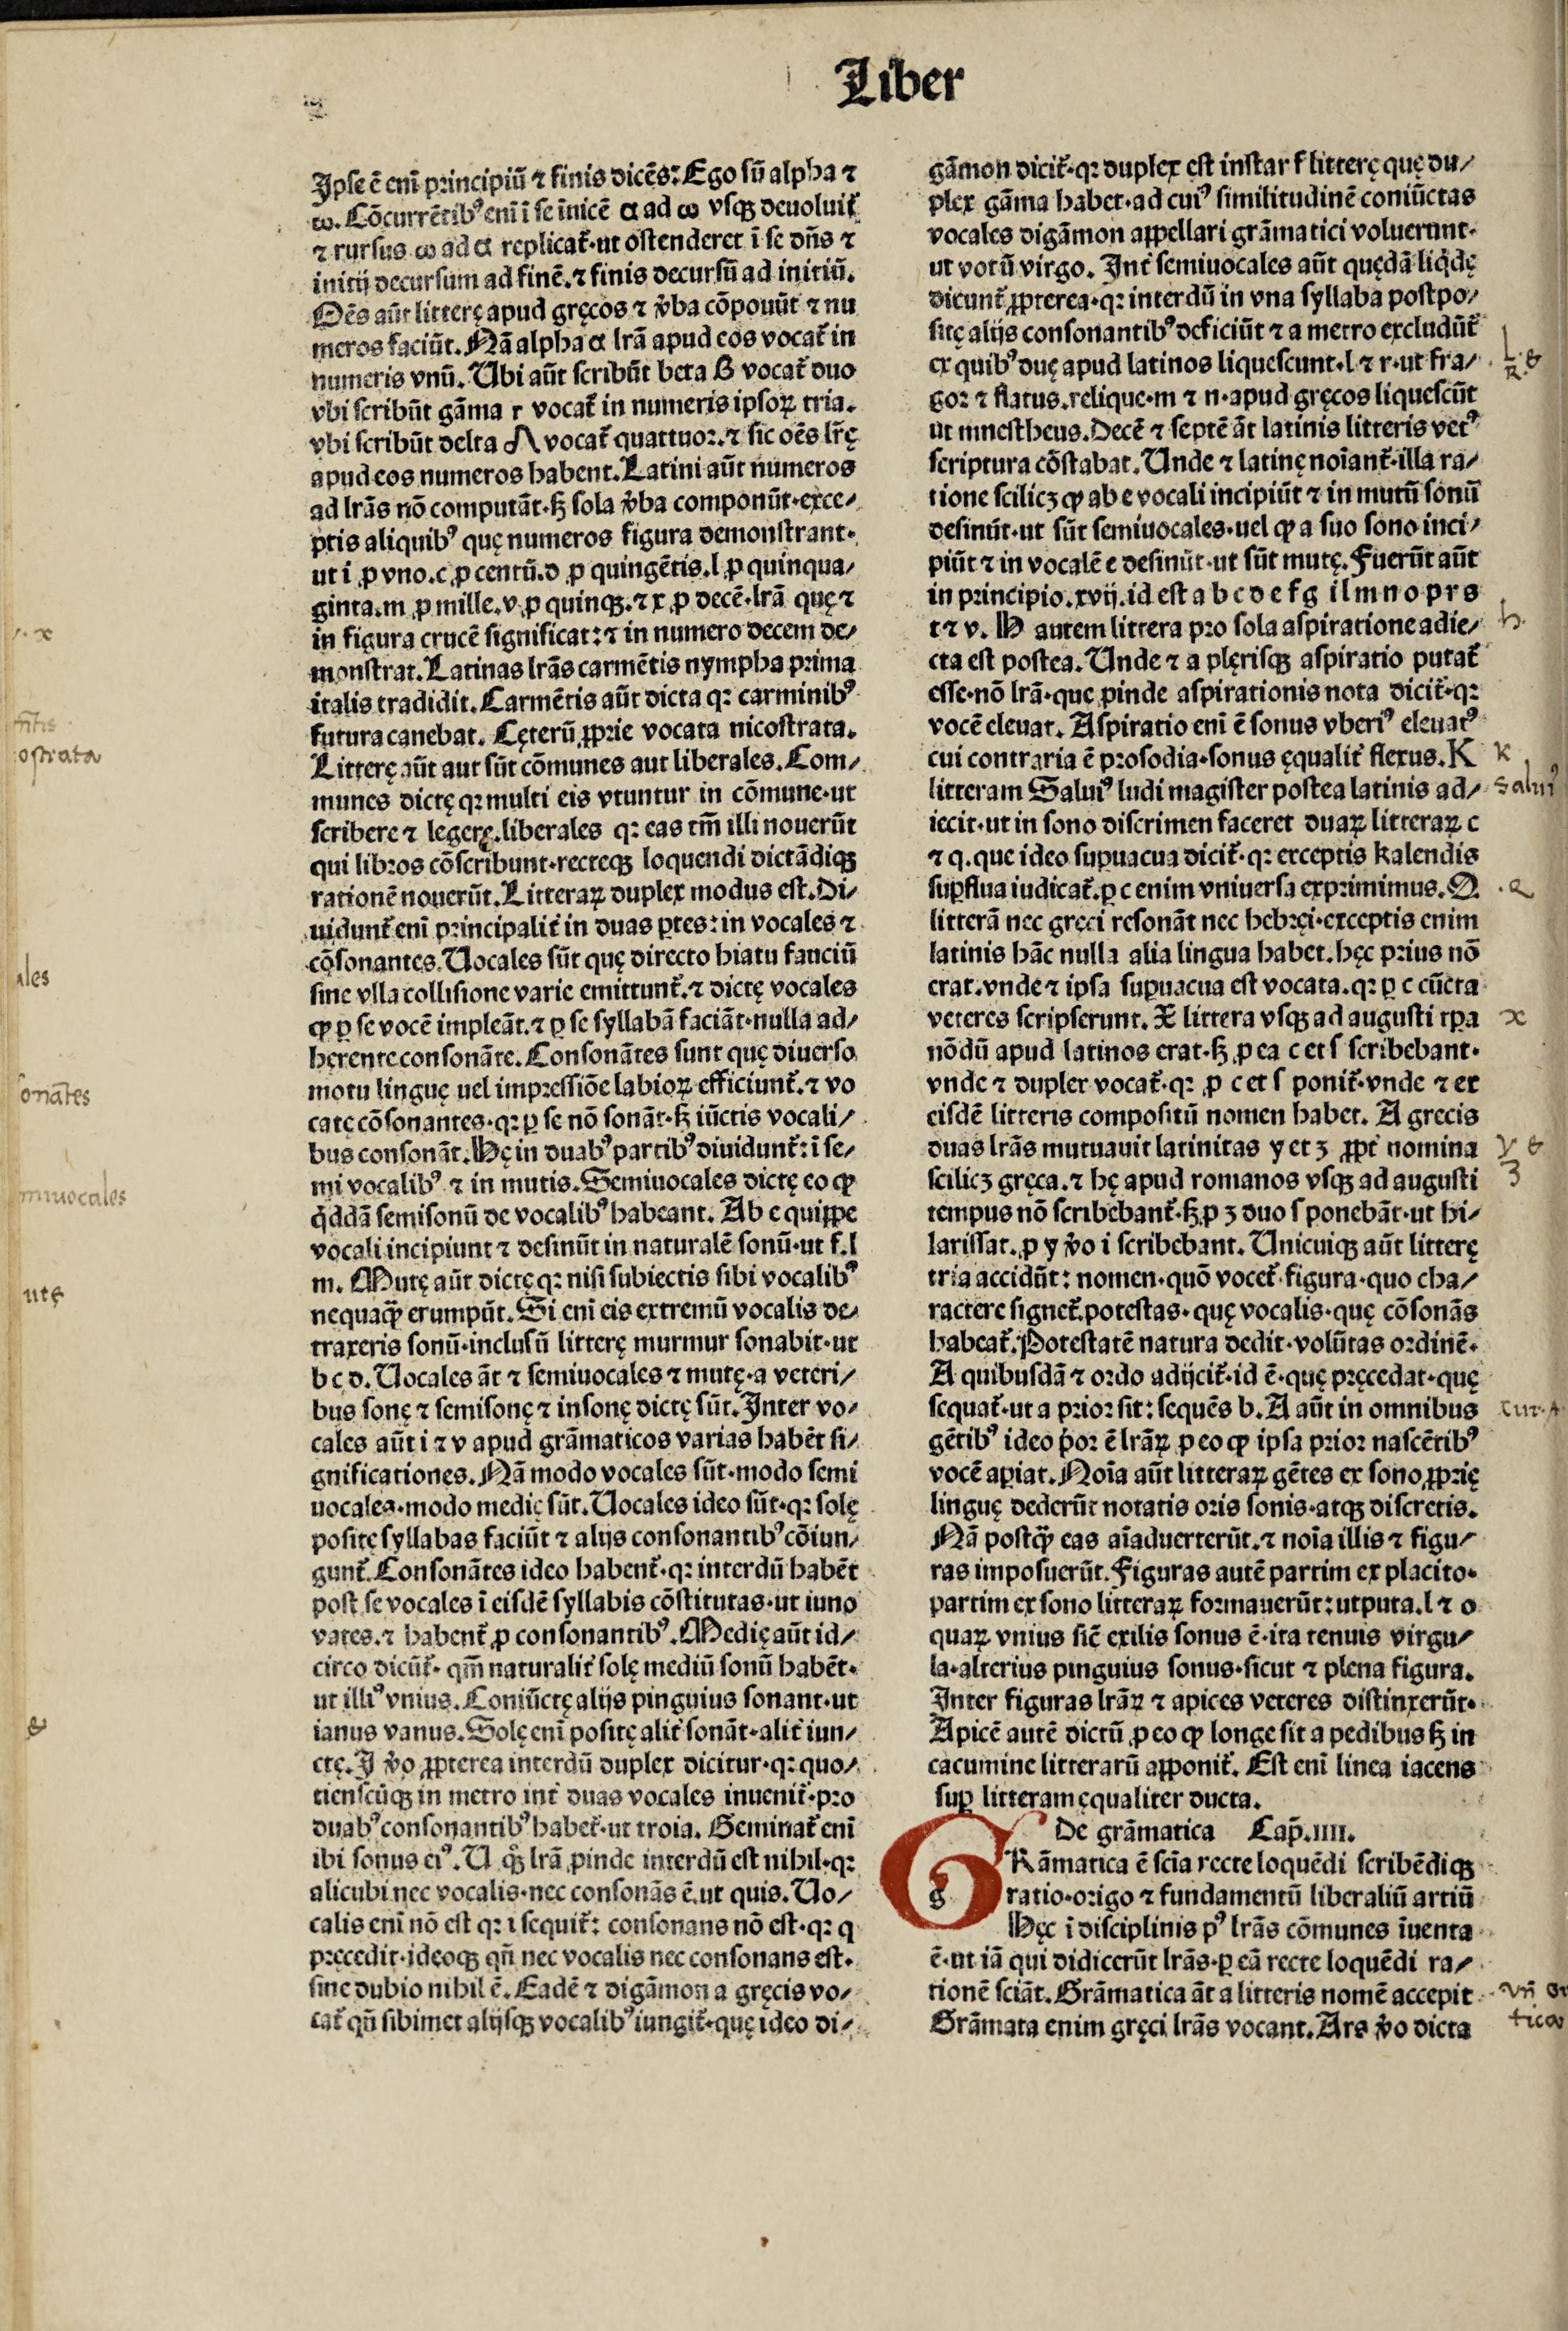 Liber
Ipse ē enī principiū ⁊ finis dicēs: Ego sū alpha ⁊
ω. Cōcurrētibꝰ enī ī se īnicē α ad ω vsqꝫ deuoluit᷑
⁊ rursus ω ad α replicat᷑·ut ostenderet ī se dn̄s ⁊
initij decursum ad finē.⁊ finis decursū ad initiū.
Oēs aūt litterę apud gręcos ⁊ v̾ba cōpouūt ⁊ nu
meros faciūt. Nā alpha α lrā apud eos vocat᷑ in
numeris vnū. Ubi aūt scribūt beta β vocat᷑ duo
vbi scribūt gāma r vocat᷑ in numeris ipsoꝝ tria.
vbi scribūt delta Λ vocat᷑ quattuor.⁊ sic oēs lr̄ę
apud eos numeros habent. Latini aūt numeros
ad lrās nō computāt·sꝫ sola v̾ba componūt·exce/
ptis aliquibꝰ quę numeros figura demonstrant·
ut i ꝓ vno.c ꝓ centū.d ꝓ quingētis.l ꝓ quinqua/
ginta.m ꝓ mille.v ꝓ quinqꝫ.⁊ x ꝓ decē·lrā quę ⁊
in figura crucē significat: ⁊ in numero decem de/
monstrat. Latinas lrās carmētis nympha prima
italis tradidit. Carmētis aūt dicta qꝛ carminibꝰ
futura canebat. Cęterū ꝓprie vocata nicostrata.
Litterę aūt aut sūt cōmunes aut liberales. Com/
munes dictę qꝛ multi eis vtuntur in cōmune·ut
scribere ⁊ legere.liberales qꝛ eas tm̄ illi nouerūt
qui libros cōscribunt·recteqꝫ loquendi dictādiqꝫ
rationē nouerūt. Litteraꝝ duplex modus est. Di/
uidunt᷑ enī principalit᷑ in duas ꝑtes: in vocales ⁊
cōsonantes. Uocales sūt quę directo hiatu fauciū
sine vlla collisione varie emittunt᷑.⁊ dictę vocales
ꝙ ꝑ se vocē impleāt.⁊ ꝑ se syllabā faciāt·nulla ad/
herente consonāte. Consonātes sunt quę diuerso
motu linguę uel impressiōe labioꝝ efficiunt᷑.⁊ vo
catę cōsonantes·qꝛ ꝑ se nō sonāt·sꝫ iūctis vocali/
bus consonāt. Hę in duabꝰ partibꝰ diuidunt᷑: ī se/
mi vocalibꝰ ⁊ in mutis. Semiuocales dictę eo ꝙ
qͥddā semisonū de vocalibꝰ habeant. Ab e quippe
vocali incipiunt ⁊ desinūt in naturalē sonū·ut f.l
m. Mutę aūt dictę qꝛ nisi subiectis sibi vocalibꝰ
nequaqͣꝫ erumpūt. Si enī eis extremū vocalis de/
traxeris sonū·inclusū litterę murmur sonabit·ut
b c d. Uocales āt ⁊ semiuocales ⁊ mutę·a veteri/
bus sonę ⁊ semisonę ⁊ insonę dictę sūt. Inter vo/
cales aūt i ⁊ v apud grāmaticos varias habēt si/
gnificationes. Nā modo vocales sūt·modo semi
uocales·modo medię sūt. Uocales ideo sūt·qꝛ solę
positę syllabas faciūt ⁊ alijs consonantibꝰ cōiun/
gunt᷑. Consonātes ideo habent᷑·qꝛ interdū habēt
post se vocales ī eisdē syllabis cōstitutas·ut iuno
vates.⁊ habent᷑ ꝓ consonantibꝰ. Medię aūt id/
circo dicūt᷑· qm̄ naturalit᷑ solę mediū sonū habēt·
ut illiꝰ vnius. Coniūctę alijs pinguius sonant·ut
ianus vanus. Solę enī positę alit᷑ sonāt·alit᷑ iun/
ctę. I v̾o ꝓpterea interdū duplex dicitur·qꝛ quo/
tienscūqꝫ in metro int᷑ duas vocales inuenit᷑·pro
duabꝰ consonantibꝰ habet᷑·ut troia. Geminat᷑ enī
ibi sonus eiꝰ. U qͣꝫ lrā ꝓinde interdū est nihil·qꝛ
alicubi nec vocalis·nec consonās ē.ut quis. Uo/
calis enī nō est qꝛ i sequit᷑: consonans nō est·qꝛ q
pręcedit·ideoqꝫ qn̄ nec vocalis nec consonans est·
sine dubio nihil ē. Eadē ⁊ digāmon a gręcis vo/
cat᷑ qn̄ sibimet alijsqꝫ vocalibꝰ iungit᷑·quę ideo di/
gāmon dicit᷑·qꝛ duplex est instar f litterę quę du/
plex gāma habet·ad cuiꝰ similitudinē coniūctas
vocales digāmon appellari grāmatici voluerunt·
ut votū virgo. Int᷑ semiuocales aūt quędā liqͥdę
dicunt᷑ ꝓpterea·qꝛ interdū in vna syllaba postpo/
sitę alijs consonantibꝰ deficiūt ⁊ a metro excludūt᷑
ex quibꝰ duę apud latinos liquescunt·l ⁊ r·ut fra/
gor ⁊ flatus.relique·m ⁊ n·apud gręcos liquescūt
ut mnestheus. Decē ⁊ septē āt latinis litteris vetꝰ
scriptura cōstabat. Unde ⁊ latinę noīant᷑·illa ra/
tione scilicꝫ ꝙ ab e vocali incipiūt ⁊ in mutū sonū
desinūt·ut sūt semiuocales·uel ꝙ a suo sono inci/
piūt ⁊ in vocalē e desinūt·ut sūt mutę. Fuerūt aūt
in principio.xvij.id est a b c d e f g i l m n o p r s
t ⁊ v. H autem littera pro sola aspiratione adie/
cta est postea. Unde ⁊ a plęrisqꝫ aspiratio putat᷑
esse·nō lrā·que ꝓinde aspirationis nota dicit᷑·qꝛ
vocē eleuat. Aspiratio enī ē sonus vberiꝰ eleuatꝰ
cui contraria ē prosodia·sonus ęqualit᷑ flexus. K
litteram Saluiꝰ ludi magister postea latinis ad/
iecit·ut in sono discrimen faceret duaꝝ litteraꝝ c
⁊ q.que ideo suꝑuacua dicit᷑·qꝛ exceptis kalendis
suꝑflua iudicat᷑.ꝑ c enim vniuersa exprimimus. Q
litterā nec gręci resonāt nec hebręi·exceptis enim
latinis hāc nulla alia lingua habet.hęc prius nō
erat.vnde ⁊ ipsa suꝑuacua est vocata.qꝛ ꝑ c cūcta
veteres scripserunt. X littera vsqꝫ ad augusti tꝑa
nōdū apud latinos erat·sꝫ ꝓ ea c et s scribebant·
vnde ⁊ duplex vocat᷑·qꝛ ꝓ c et s ponit᷑·vnde ⁊ ex
eisdē litteris compositū nomen habet. A grecis
duas lrās mutuauit latinitas y et ʒ ꝓpt᷑ nomina
scilicꝫ gręca.⁊ hę apud romanos vsqꝫ ad augusti
tempus nō scribebant᷑·sꝫ ꝓ ʒ duo s ponebāt·ut hi/
larissat.ꝓ y v̾o i scribebant. Unicuiqꝫ aūt litterę
tria accidūt: nomen·quō vocet᷑·figura·quo cha/
ractere signet᷑.potestas·quę vocalis·quę cōsonās
habeat᷑. Potestatē natura dedit·volūtas ordinē·
A quibusdā ⁊ ordo adijcit᷑·id ē·quę pręcedat·quę
sequat᷑·ut a prior sit: sequēs b. A aūt in omnibus
gētibꝰ ideo pͥor ē lrāꝝ ꝓ eo ꝙ ipsa prior nascētibꝰ
vocē apiat. Noīa aūt litteraꝝ gētes ex sono ꝓprię
linguę dederūt notatis oris sonis·atqꝫ discretis.
Nā postqͣꝫ eas aīaduerterūt.⁊ noīa illis ⁊ figu/
ras imposuerūt. Figuras autē partim ex placito·
partim ex sono litteraꝝ formauerūt: utputa.l ⁊ o
quaꝝ vnius sic̄ exilis sonus ē·ita tenuis virgu/
la·alterius pinguius sonus·sicut ⁊ plena figura.
Inter figuras lrāꝝ ⁊ apices veteres distinxerūt·
Apicē autē dictū ꝓ eo ꝙ longe sit a pedibus sꝫ in
cacumine litterarū apponit᷑. Est enī linea iacens
suꝑ litteram ęqualiter ducta.
De grāmatica Cap̄.iiii.
g
Rāmatica ē scīa recte loquēdi scribēdiqꝫ
ratio·origo ⁊ fundamentū liberaliū artiū
Hęc ī disciplinis pꝰ lrās cōmunes īuenta
ē·ut iā qui didicerūt lrās·ꝑ eā recte loquēdi ra/
tionē sciāt. Grāmatica āt a litteris nomē accepit
Grāmata enim gręci lrās vocant. Ars v̾o dicta
x
ostrata
ales
onātes
miuocales
utę
&
h
K
Saluiꝰ
Q
x
y &
ʒ